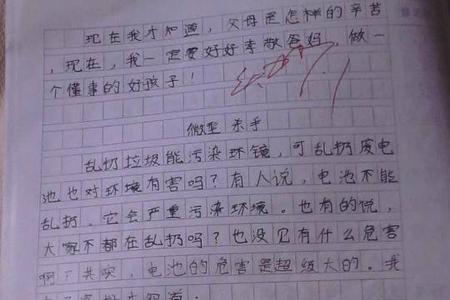 现在我才知道，父母是怎样的辛苦
，现在，我一定要好好孝敬爸妈，做一
个懂事的好孩子！
微型杀手
乱扔垃圾能污染环镜，可乱扔废电
池也对环境有害吗？有人说，电池不能
乱扔．它会严重污染环境．也有的说，
大家不都在乱扔吗？也没见有什么危害
啊？其实，电池的危害是超级大的。我